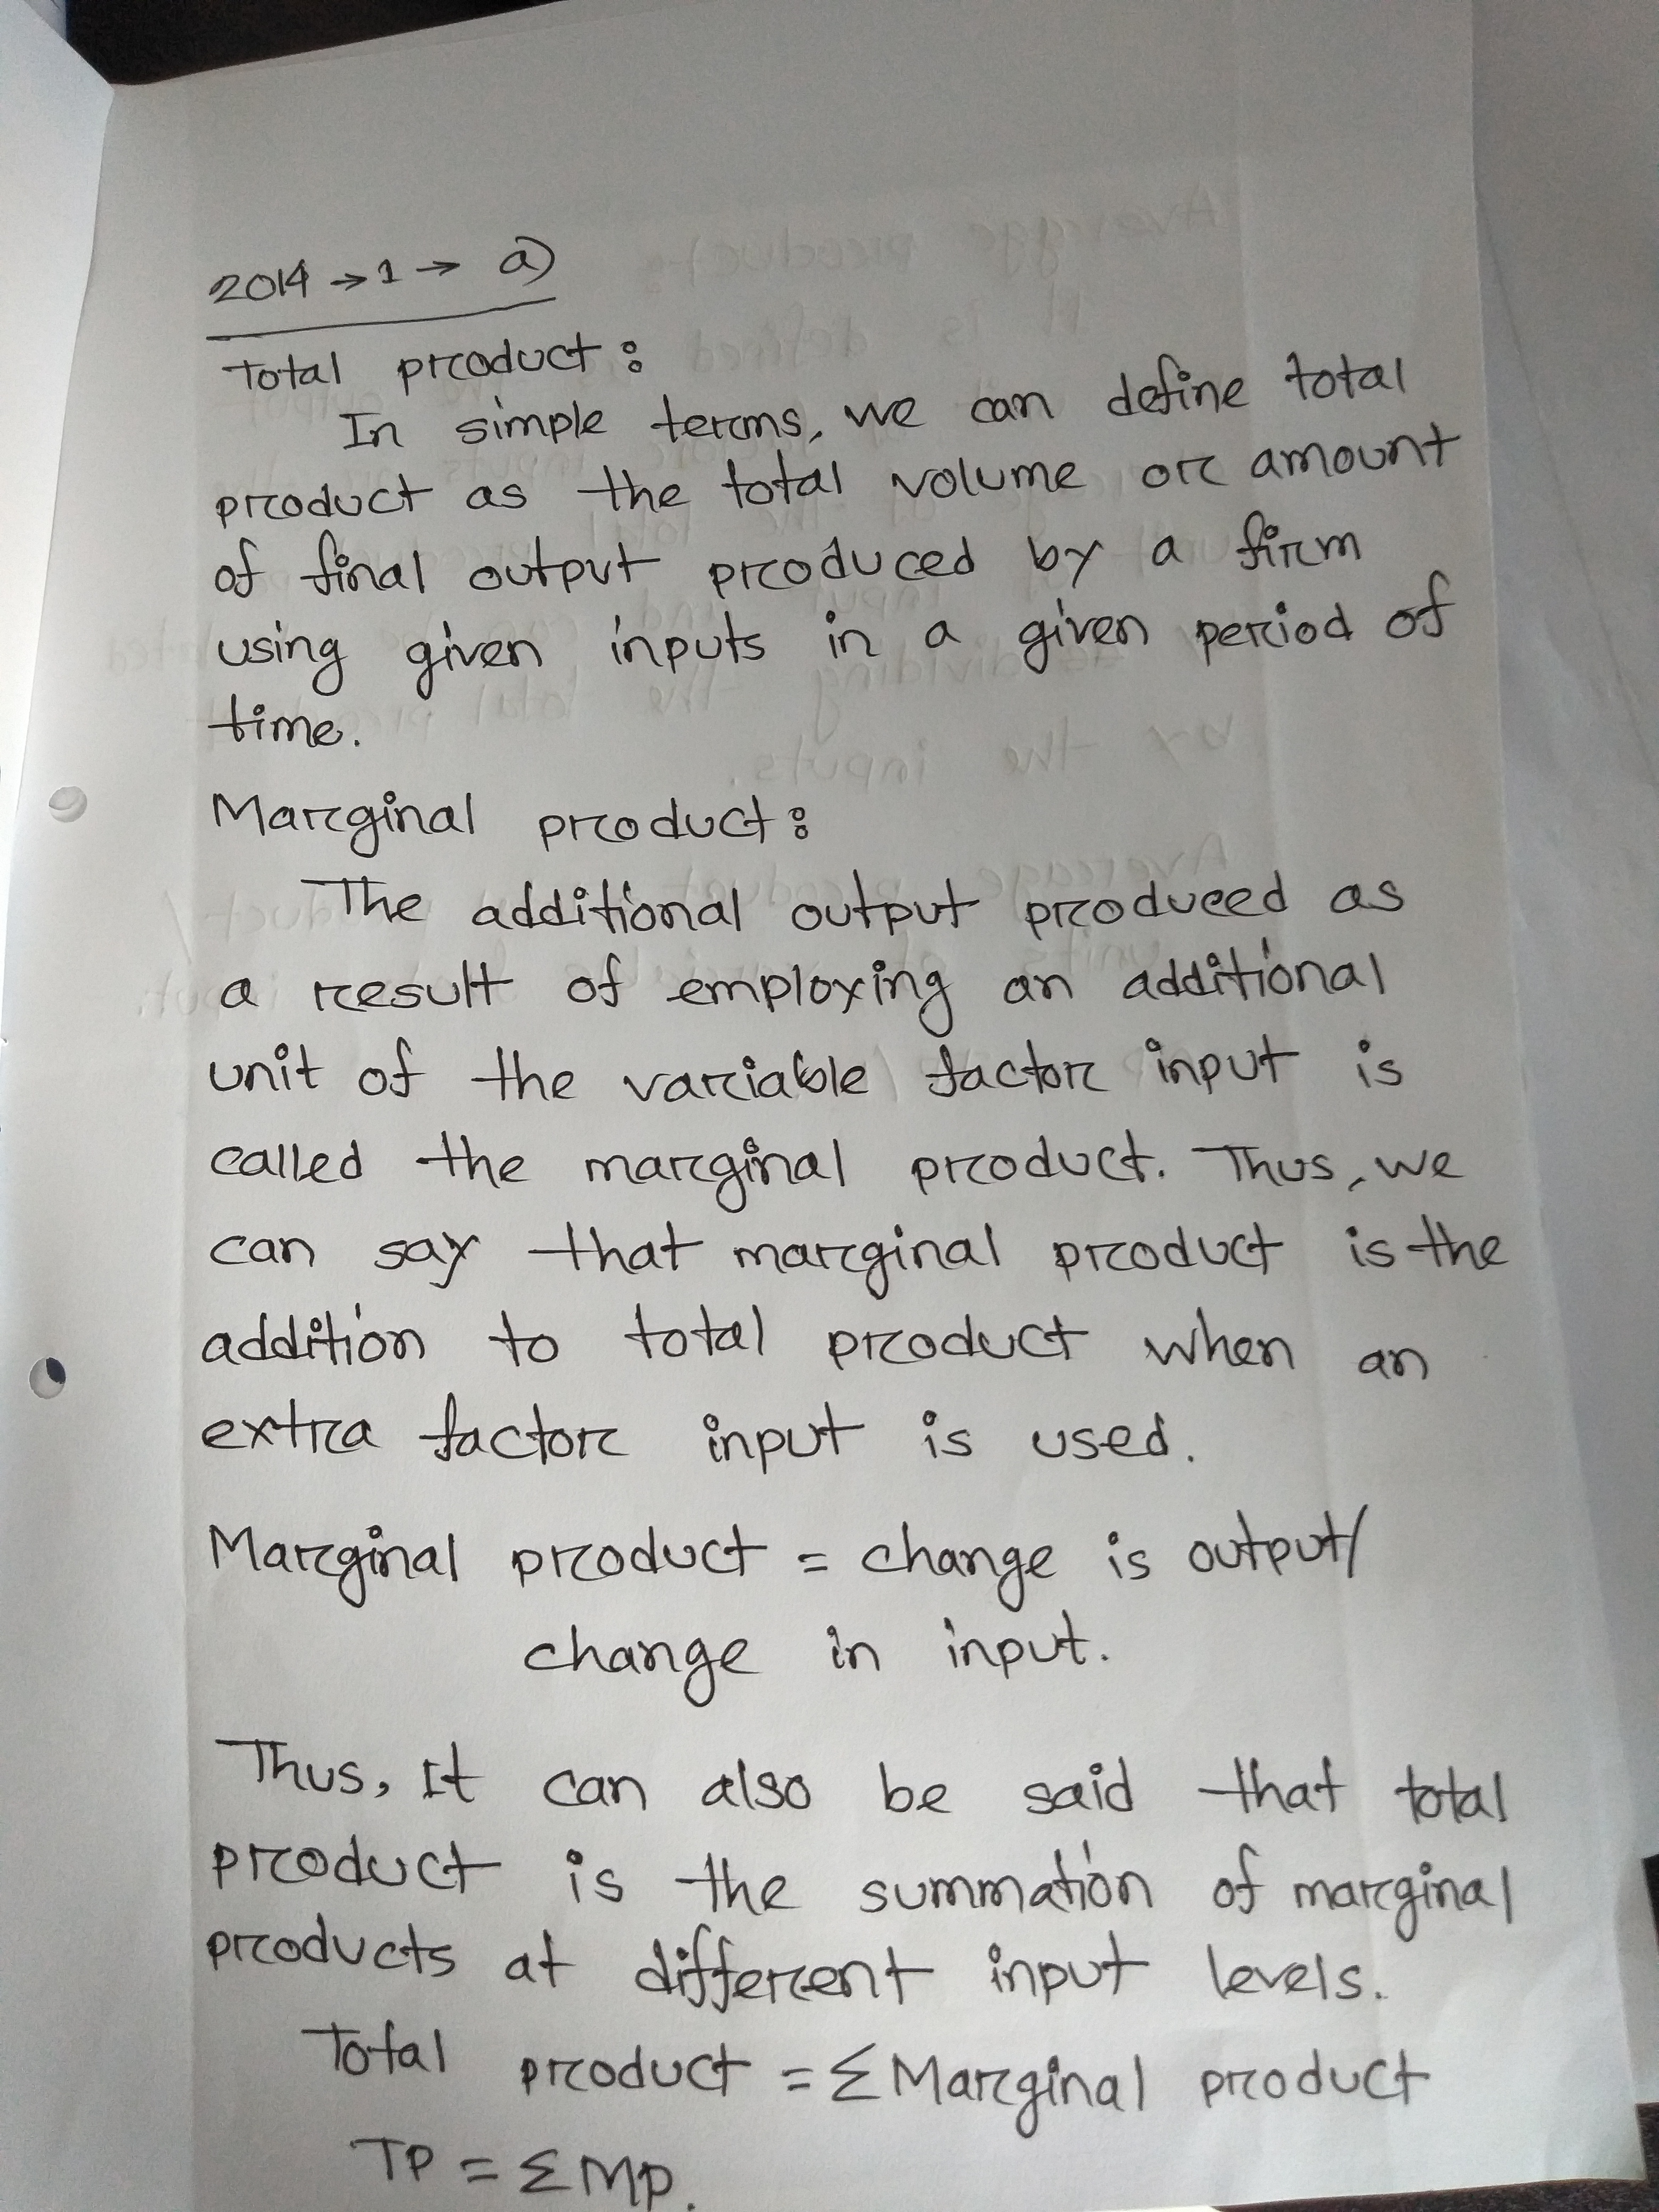 2014 → 1 → a)
Total product:
In simple terms, we can define total
product as the total volume or amount
of final output produced by a firm
using given inputs in a given period of
time.
Marginal product:
The additional output produced as
a result of employing an additional
unit of the variable factor input is
called the marginal product. Thus, we
can say that marginal product is the
addition to total product when an
extra factor input is used.
Marginal product = change is output/
change in input.
Thus, It can also be said that total
product is the summation of marginal
products at different input levels.
Total product = Σ Marginal product
TP = Σ MP.